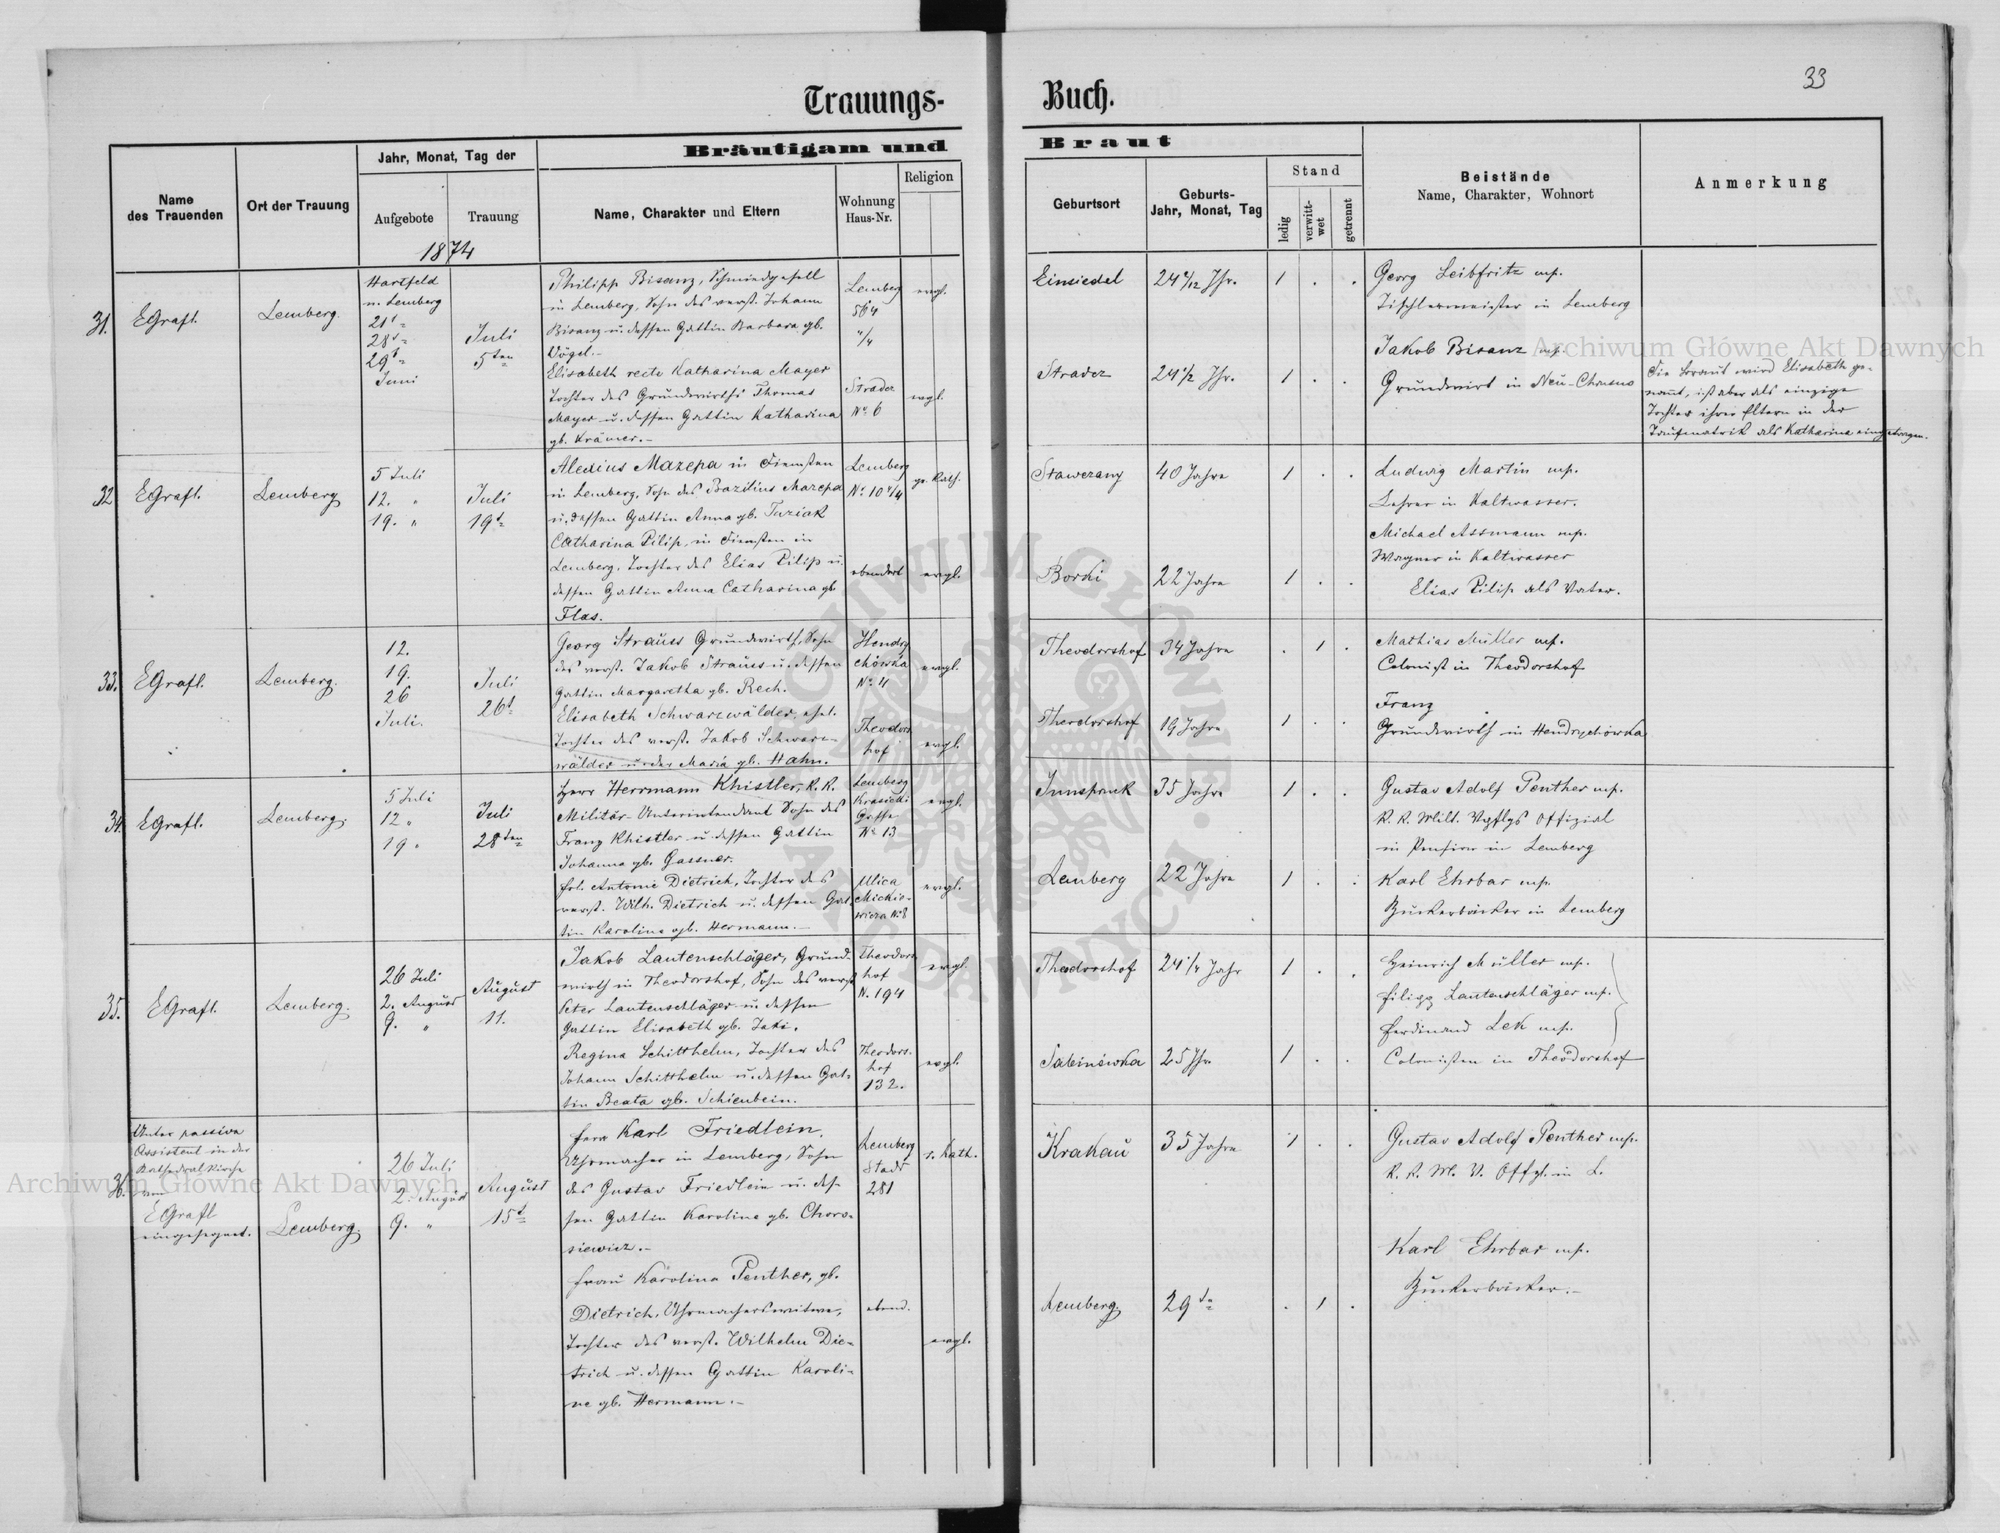 33
Trauungs-Buch.
Bräutigam und Braut
Name des Trauenden
Ort der Trauung
Jahr, Monat, Tag der
Aufgebote
Trauung
Name, Charakter und Eltern
Wohnung Haus-Nr.
Religion
Geburtsort
Geburts-Jahr, Monat, Tag
Stand
ledig
verwittwet
getrennt
Beistände
Name, Charakter, Wohnort
Anmerkung
1874
31.
EGrafl.
Lemberg.
Hartfeld
u. Lemberg
21t
28t
29t
Juni
Juli
5ten
Philipp Bisanz, Schmiedgesell
in Lemberg, Sohn des verst. Johann
Bisanz u. dessen Gattin Barbara gb.
Vögel.-
Lemberg
564
4/4
evgl.
Einsiedel
24 Jhr.
1 . .
Georg Leibfritz mp.
Tischlermeister in Lemberg
Elisabeth recte Katharina Mayer
Tochter des Grundwirths Thomas
Mayer u. dessen Gattin Katharina
gb. Krämer.-
Stradez
No 6
evgl.
Stradez
24 1/2 Jhr.
1 . .
Jakob Bisanz mp.
Grundwirt in Neu-Chrusno
Die Braut wird Elisabeth ge-
nannt, ist aber als einzige
Tochter ihrer Eltern in der
Taufmatrik als Katharina eingetragen.
32
EGrafl.
Lemberg
5 Juli
12. "
19. "
Juli
19t
Alexius Mazepa in Diensten
in Lemberg, Sohn des Bazilius Mazepa
u. dessen Gattin Anna gb. Tuziak
Lemberg
No 10 4/4
gr. Kath.
Stawczany
40 Jahre
1 . .
Ludwig Martin mp.
Lehrer in Kaltwasser.
Michael Assmann mp.
Wagner in Kaltwasser
Catharina Pilip, in Diensten in
Lemberg, Tochter des Elias Pilip u.
dessen Gattin Anna Catharina gb
Flas.
ebendort
evgl.
Borki
22 Jahre
1 . .
Elias Pilip als Vater.
33.
EGrafl.
Lemberg.
12.
19.
26
Juli.
Juli
26t
Georg Strauss Grundwirth, Sohn
des verst. Jakob Strauss u. dessen
Gattin Margaretha gb. Rech.
Hendry
chówka
No 4
evgl.
Theodorshof
34 Jahre
. 1 .
Mathias Müller mp.
Colonist in Theodorshof
Elisabeth Schwarzwälder, ehel.
Tochter des verst. Jakob Schwarz-
wälder u. der Maria gb. Hahn.
Theodors
hof
evgl.
Theodorshof
19 Jahre
1 . .
Franz
Grundwirth in Hendrychówka
34
EGrafl.
Lemberg.
5 Juli
12 "
19 "
Juli
28ten
Herr Herrmann Khistler, k. k.
Militär-Unterintendant Sohn des
Franz Khistler u. dessen Gattin
Johanna gb. Gassner.
Lemberg
Krasicki
Gasse
No 13
evgl.
Innspruk
35 Jahre
1 . .
Gustav Adolf Penther mp.
K. K. Milt. Vpflgs Offizial
in Pension in Lemberg
Frl. Antonie Dietrich, Tochter des
verst. Wilh. Dietrich u. dessen Gat-
tin Karolina gb. Hermann.-
Ulica
Mickie-
wicza No 8
evgl.
Lemberg
22 Jahre
1 . .
Karl Ehrbar mp.
Zuckerbäcker in Lemberg
35.
EGrafl.
Lemberg.
26 Juli
2. August
9. "
August
11.
Jakob Lautenschläger, Grund-
wirth in Theodorshof, Sohn des verst
Peter Lautenschläger u. dessen
Gattin Elisabeth gb. Jaki.
Theodors
hof
N. 194
evgl.
Theodorshof
24 1/4 Jahr
1 . .
Heinrich Müller mp.
Filipp Lautenschläger mp.
Ferdinand Lek mp.
Colonisten in Theodorshof
Regina Schitthelm, Tochter des
Johann Schitthelm u. dessen Gat-
tin Beata gb. Schienbein.
Theodors-
hof
132.
evgl.
Sabinówka
25 Jhr
1 . .
36.
Unter passive
Assistent in der
Kathedralkirche
von
EGrafl
eingesegnet.
Lemberg.
26 Juli
2. August
9. "
August
15t
Herr Karl Friedlein,
Uhrmacher in Lemberg, Sohn
des Gustav Friedlein u. des-
sen Gattin Karoline gb. Choro-
siewicz.-
Lemberg
Stadt
281
r. Kath.
Krakau
35 Jahre
1 . .
Gustav Adolf Penther mp.
K. K. M. V. Offzl. in L.
Frau Karolina Penther, gb.
Dietrich, Uhrmacherswitwe,
Tochter des verst. Wilhelm Die-
trich u. dessen Gattin Karoli-
ne gb. Hermann.-
ebend.
evgl.
Lemberg
29
. 1 .
Karl Ehrbar mp.
Zuckerbäcker.-
Archiwum Główne Akt Dawnych
Archiwum Główne Akt Dawnych
ARCHIWUM GŁÓWNE AKT DAWNYCH